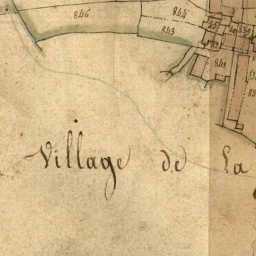 846
844
843
Village de La